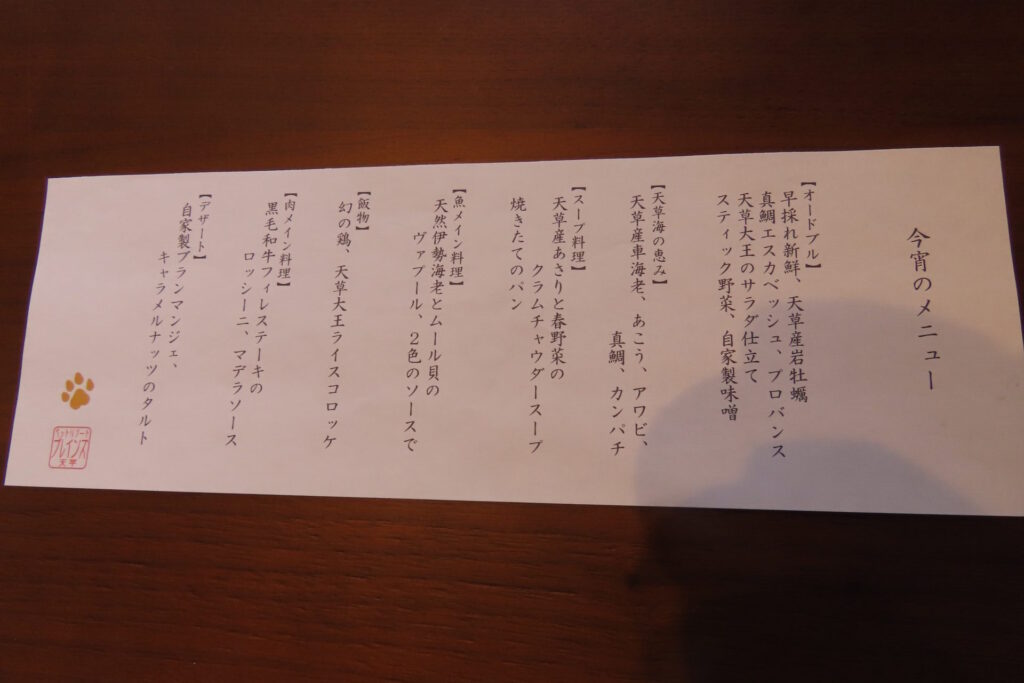 今宵のメニュー
【オードブル】
早採れ新鮮、天草産岩牡蠣
真鯛エスカベッシュ、プロバンス
天草大王のサラダ仕立て
スティック野菜、自家製味噌
【天草海の恵み】
天草産車海老、あこう、アワビ、
真鯛、カンパチ
【スープ料理】
天草産あさりと春野菜の
クラムチャウダースープ
焼きたてのパン
【魚メイン料理】
天然伊勢海老とムール貝の
ヴァプール、2色のソースで
【飯物】
幻の鶏、天草大王ライスコロッケ
【肉メイン料理】
黒毛和牛フィレステーキの
ロッシーニ、マデラソース
【デザート】
自家製ブランマンジェ、
キャラメルナッツのタルト
ペットリゾート
ブレインズ
天草